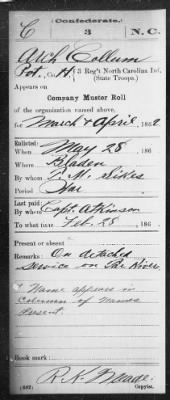 Confederate.
C 3 N.C.
Arch Collum
Pvt., Co. H, 3 Reg't North Carolina Inf.
(State Troops.)
Appears on
Company Muster Roll
of the organization named above,
for March & April, 1862
Enlisted:
When May 28, 186
Where Bladen
By whom T. M. Sikes
Period War
Last paid:
By whom Capt. Atkinson
To what time Feb. 28, 186
Present or absent
Remarks: On detached
service on the River.
Name appears in
column of names
present.
Book mark:
R. N.
(642) Copyist.